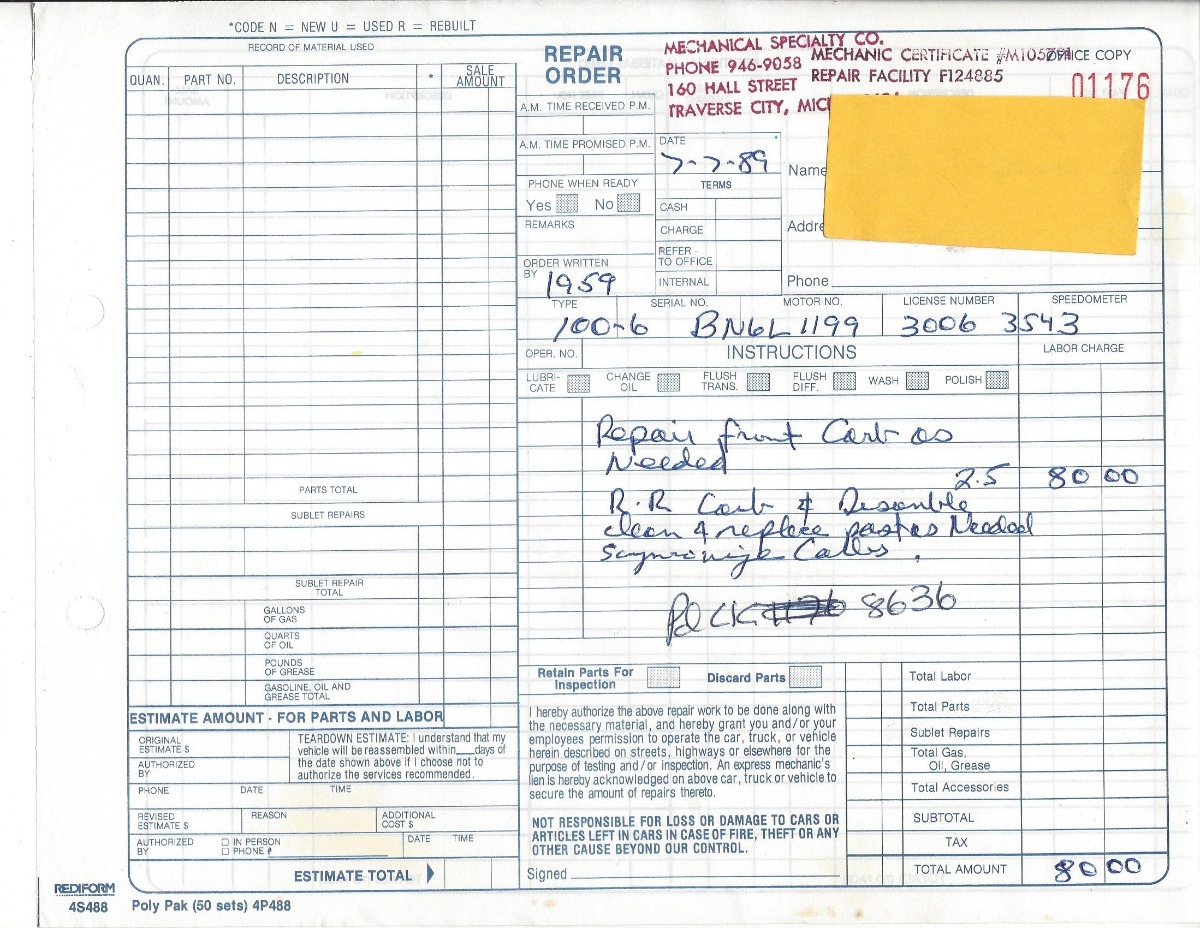 *CODE N = NEW U = USED R = REBUILT
RECORD OF MATERIAL USED
QUAN. PART NO. DESCRIPTION * SALE AMOUNT
PARTS TOTAL
SUBLET REPAIRS
SUBLET REPAIR TOTAL
GALLONS OF GAS
QUARTS OF OIL
POUNDS OF GREASE
GASOLINE, OIL AND GREASE TOTAL
ESTIMATE AMOUNT - FOR PARTS AND LABOR
ORIGINAL ESTIMATE $
AUTHORIZED BY
TEARDOWN ESTIMATE: I understand that my
vehicle will be reassembled within___days of
the date shown above if I choose not to
authorize the services recommended.
PHONE DATE TIME
REVISED ESTIMATE $ REASON ADDITIONAL COST $
AUTHORIZED BY IN PERSON DATE TIME
PHONE #
ESTIMATE TOTAL
REDIFORM
4S488 Poly Pak (50 sets) 4P488
REPAIR ORDER
MECHANICAL SPECIALTY CO.
PHONE 946-9058
160 HALL STREET
TRAVERSE CITY, MICH
MECHANIC CERTIFICATE #M105
REPAIR FACILITY F124885
OFFICE COPY
01176
A.M. TIME RECEIVED P.M.
A.M. TIME PROMISED P.M.
DATE
7-7-89
PHONE WHEN READY
Yes No
REMARKS
TERMS
CASH
CHARGE
REFER - TO OFFICE
INTERNAL
Name
Addre
Phone
ORDER WRITTEN BY
1959
TYPE SERIAL NO. MOTOR NO. LICENSE NUMBER SPEEDOMETER
100-6 BN6L1199 3006 3543
OPER. NO. INSTRUCTIONS LABOR CHARGE
LUBRI-CATE CHANGE OIL FLUSH TRANS. FLUSH DIFF. WASH POLISH
Repair front Carb as
Needed
2.5 80 00
R.R Carb & Desemble
clean & replace part as Needed
Carbs.
Pd CK 8636
Retain Parts For Inspection Discard Parts
I hereby authorize the above repair work to be done along with
the necessary material, and hereby grant you and/or your
employees permission to operate the car, truck, or vehicle
herein described on streets, highways or elsewhere for the
purpose of testing and/or inspection. An express mechanic's
lien is hereby acknowledged on above car, truck or vehicle to
secure the amount of repairs thereto.
NOT RESPONSIBLE FOR LOSS OR DAMAGE TO CARS OR
ARTICLES LEFT IN CARS IN CASE OF FIRE, THEFT OR ANY
OTHER CAUSE BEYOND OUR CONTROL.
Signed
Total Labor
Total Parts
Sublet Repairs
Total Gas, Oil, Grease
Total Accessories
SUBTOTAL
TAX
TOTAL AMOUNT 80 00